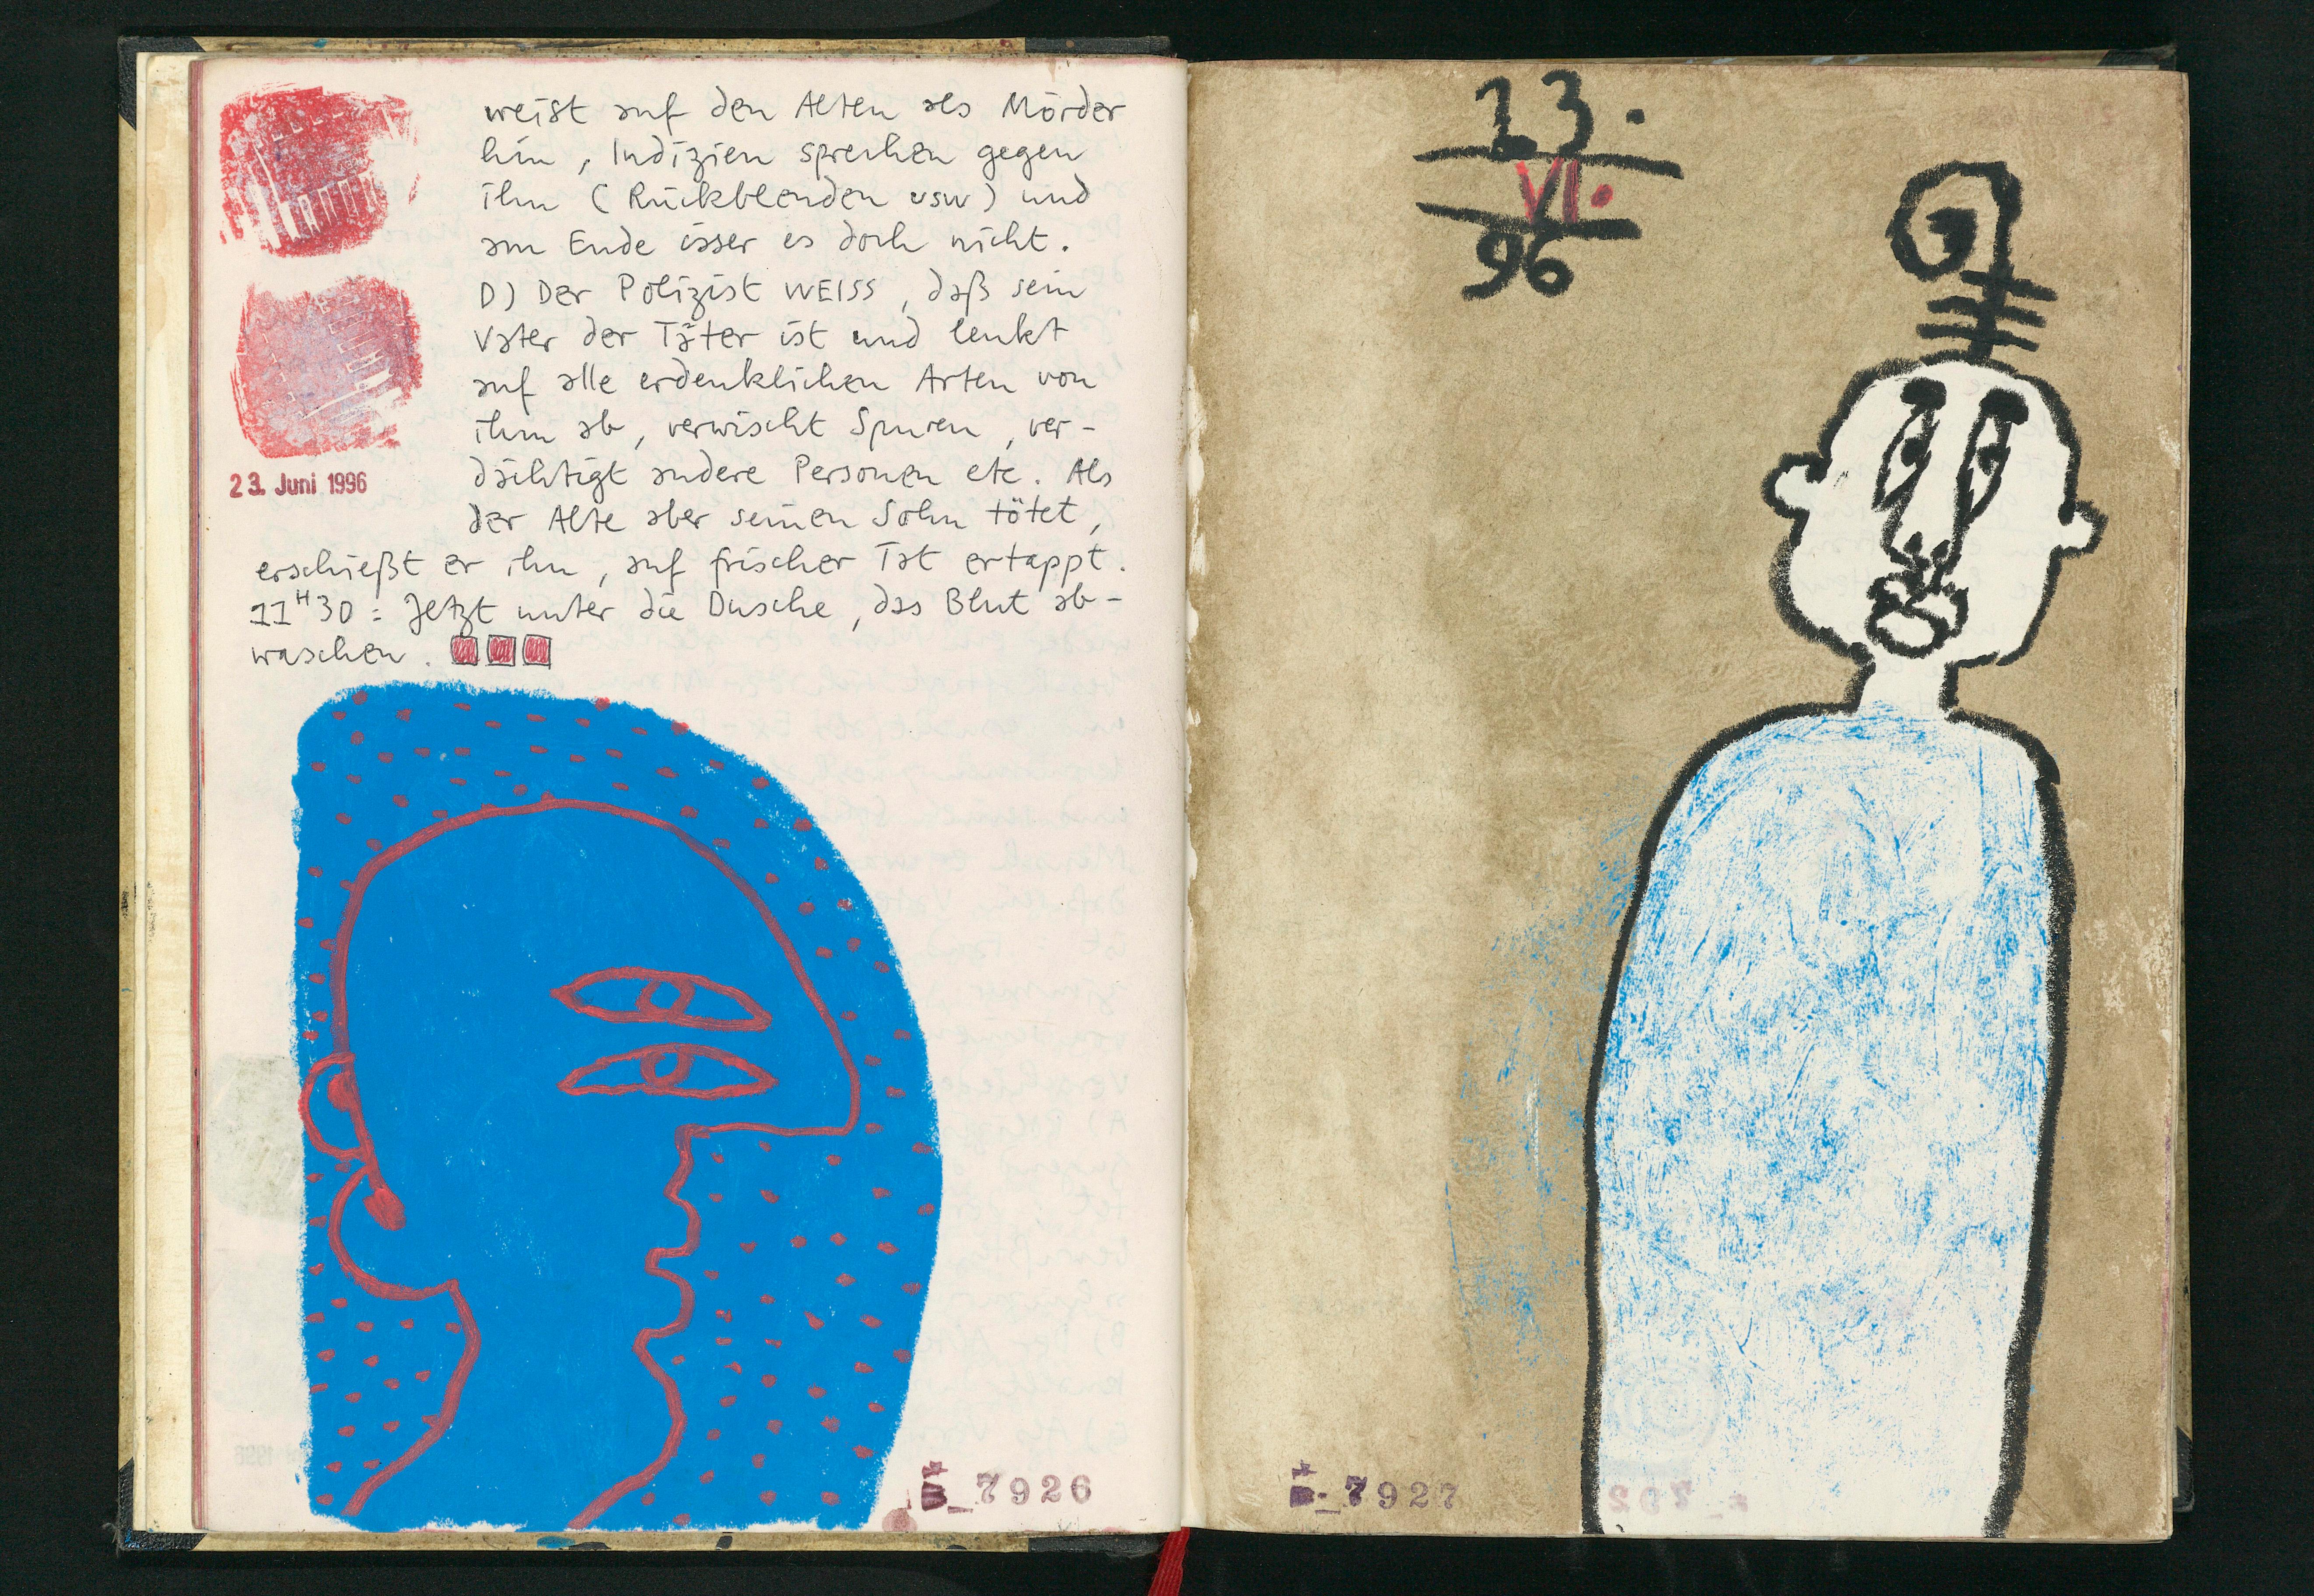 weist auf den Alten als Mörder
hin, Indizien sprechen gegen
ihn (Rückblenden usw) und
am Ende isser es doch nicht.
D) Der Polizist WEISS, daß sein
Vater der Täter ist und lenkt
auf alle erdenklichen Arten von
ihm ab, verwischt Spuren, ver-
dächtigt andere Personen etc. Als
der Alte aber seinen Sohn tötet,
erschießt er ihn, auf frischer Tat ertappt.
11H30: Jetzt unter die Dusche, das Blut ab-
waschen.
23. Juni 1996
7926
23.
VI.
96
7927